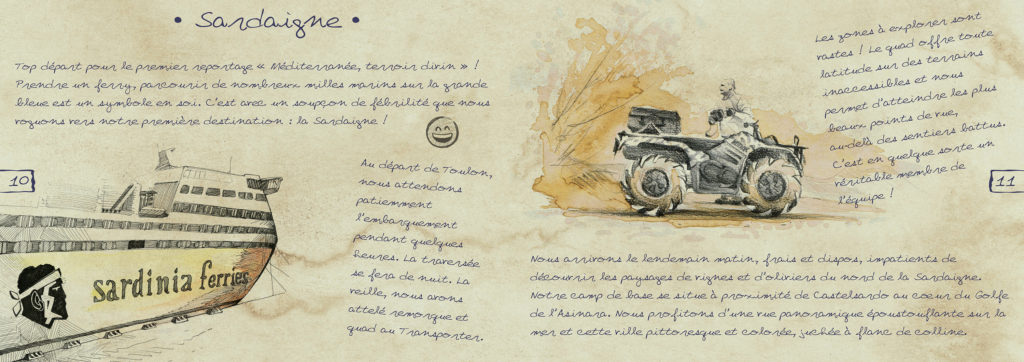 • Sardaigne •
Top départ pour le premier reportage « Méditerranée, terroir divin » !
Prendre un ferry, parcourir de nombreux milles marins sur la grande
bleue est un symbole en soi. C'est avec un soupçon de fébrilité que nous
voguons vers notre première destination : la Sardaigne !
10
Au départ de Toulon,
nous attendons
patiemment
l'embarquement
pendant quelques
heures. La traversée
se fera de nuit. La
veille, nous avons
attelé remorque et
quad au Transporter.
sardinia ferries
Les zones à explorer sont
vastes ! Le quad offre toute
latitude sur des terrains
inaccessibles et nous
permet d'atteindre les plus
beaux points de vue,
au-delà des sentiers battus.
C'est en quelque sorte un
véritable membre de
l'équipe !
11
Nous arrivons le lendemain matin, frais et dispos, impatients de
découvrir les paysages de vignes et d'oliviers du nord de la Sardaigne.
Notre camp de base se situe à proximité de Castelsardo au coeur du Golfe
de l'Asinara. Nous profitons d'une vue panoramique époustouflante sur la
mer et cette ville pittoresque et colorée, juchée à flanc de colline.